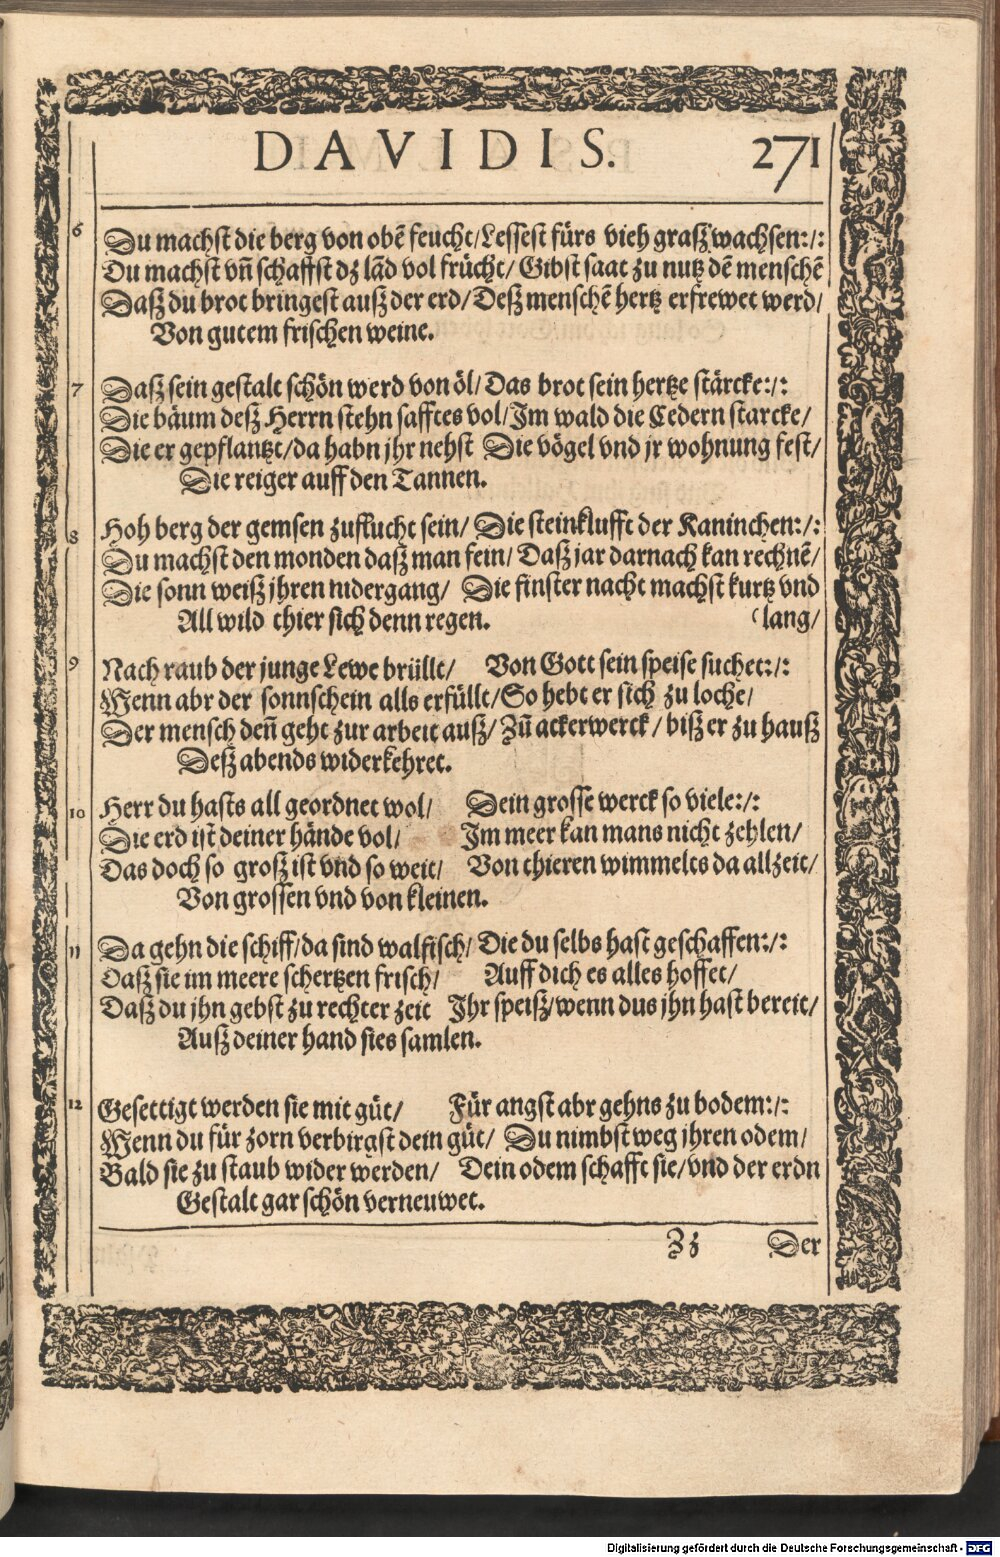 DAVIDIS. 271
6 Du machst die berg von obē feucht/Lessest fürs vieh graß wachsen:/:
Du machst vñ schaffst dz lād vol frücht/ Gibst saat zu nutz dē menschē
Daß du brot bringest auß der erd/ Deß menschē hertz erfrewet werd/
Von gutem frischen weine.
7 Daß sein gestalt schön werd von öl/ Das brot sein hertze stärcke:/:
Die bäum deß Herrn stehn safftes vol/Im wald die Cedern starcke/
Die er gepflantzt/da habn jhr nehst Die vögel vnd jr wohnung fest/
Die reiger auff den Tannen.
8 Hoh berg der gemsen zuflucht sein/ Die steinklufft der Kaninchen:/:
Du machst den monden daß man fein/ Daß jar darnach kan rechnē/
Die sonn weiß jhren nidergang/ Die finster nacht machst kurtz vnd
All wild thier sich denn regen. (lang/
9 Nach raub der junge Lewe brüllt/ Von Gott sein speise suchet:/:
Wenn abr der sonnschein alls erfüllt/So hebt er sich zu loche/
Der mensch deñ geht zur arbeit auß/ Zū ackerwerck/ biß er zu hauß
Deß abends widerkehret.
10 Herr du hasts all geordnet wol/ Dein grosse werck so viele:/:
Die erd ist deiner hände vol/ Im meer kan mans nicht zehlen/
Das doch so groß ist vnd so weit/ Von thieren wimmelts da allzeit/
Von grossen vnd von kleinen.
11 Da gehn die schiff/da sind walfisch/ Die du selbs hast geschaffen:/:
Daß sie im meere schertzen frisch/ Auff dich es alles hoffet/
Daß du jhn gebst zu rechter zeit Ihr speiß/wenn dus jhn hast bereit/
Auß deiner hand sies samlen.
12 Gesettigt werden sie mit güt/ Für angst abr gehns zu bodem:/:
Wenn du für zorn verbirgst dein güt/ Du nimbst weg jhren odem/
Bald sie zu staub wider werden/ Dein odem schafft sie/vnd der erdn
Gestalt gar schön verneuwet.
Zz Der
Digitalisierung gefördert durch die Deutsche Forschungsgemeinschaft - DFG